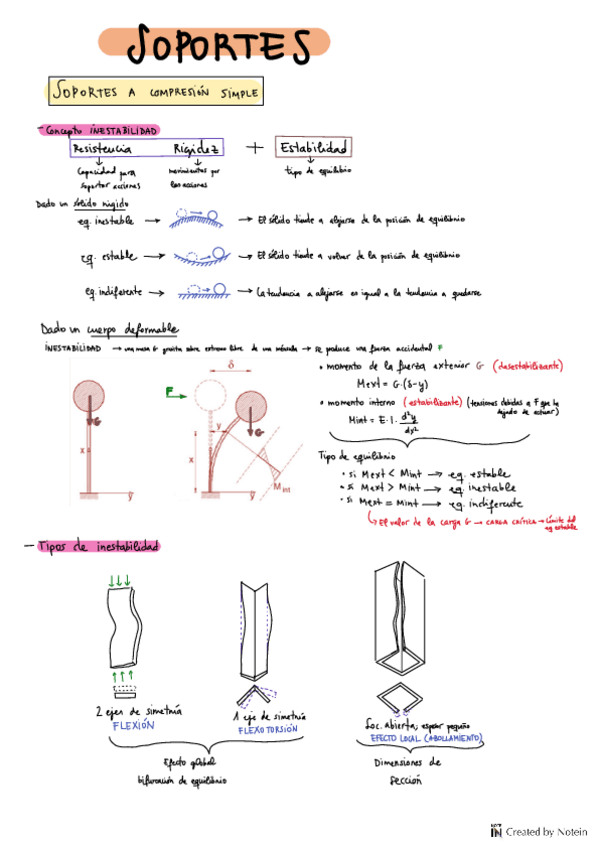 SOPORTES
SOPORTES A COMPRESIÓN SIMPLE
- Concepto INESTABILIDAD
Resistencia Rigidez + Estabilidad
Capacidad para soportar acciones
movimientos por las acciones
tipo de equilibrio
Dado un sólido rígido
eq. inestable → → El sólido tiende a alejarse de la posición de equilibrio
eq. estable → → El sólido tiende a volver de la posición de equilibrio
eq. indiferente → → La tendencia a alejarse es igual a la tendencia a quedarse
Dado un cuerpo deformable
INESTABILIDAD → una masa G gravita sobre extremo libre de una ménsula → se produce una fuerza accidental F
• momento de la fuerza exterior G (desestabilizante)
Mext = G·(δ-y)
• momento interno (estabilizante) (tensiones debidas a F que ha dejado de actuar)
Mint = E·I· d²y/dx²
G x y
F δ G x y M int y
Tipo de equilibrio
• si Mext < Mint → eq. estable
• si Mext > Mint → eq. inestable
• si Mext = Mint → eq. indiferente
El valor de la carga G → CARGA CRÍTICA → Límite del eq estable
- Tipos de inestabilidad
2 ejes de simetría
FLEXIÓN
1 eje de simetría
FLEXOTORSIÓN
Sec. abierta; espesor pequeño
EFECTO LOCAL (ABOLLAMIENTO)
Efecto global
bifurcación de equilibrio
Dimensiones de
sección
Created by Notein